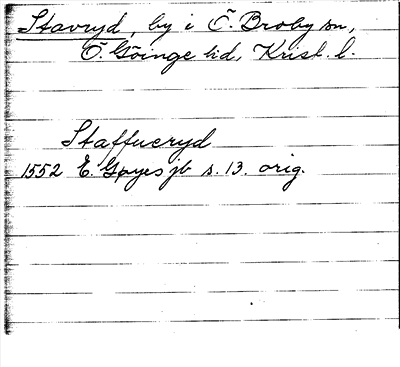 Stavryd, by i Ö. Broby sn,
Ö. Göinge hd, Krist. l.
Staffueryd
1552 E. Gøyes jb s. 13. orig.